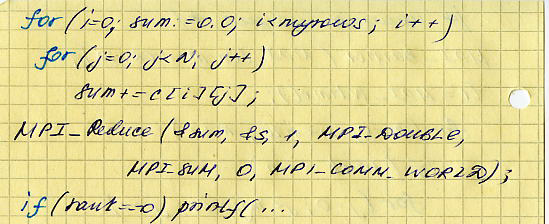 for (i=0; sum=0.0; i<nyrows; i++)
for (j=0; j<N; j++)
sum+=c[i][j];
MPI_Reduce (&sum, &s, 1, MPI_DOUBLE,
MPI_SUM, 0, MPI_COMM_WORLD);
if (rank==0) printf( ...